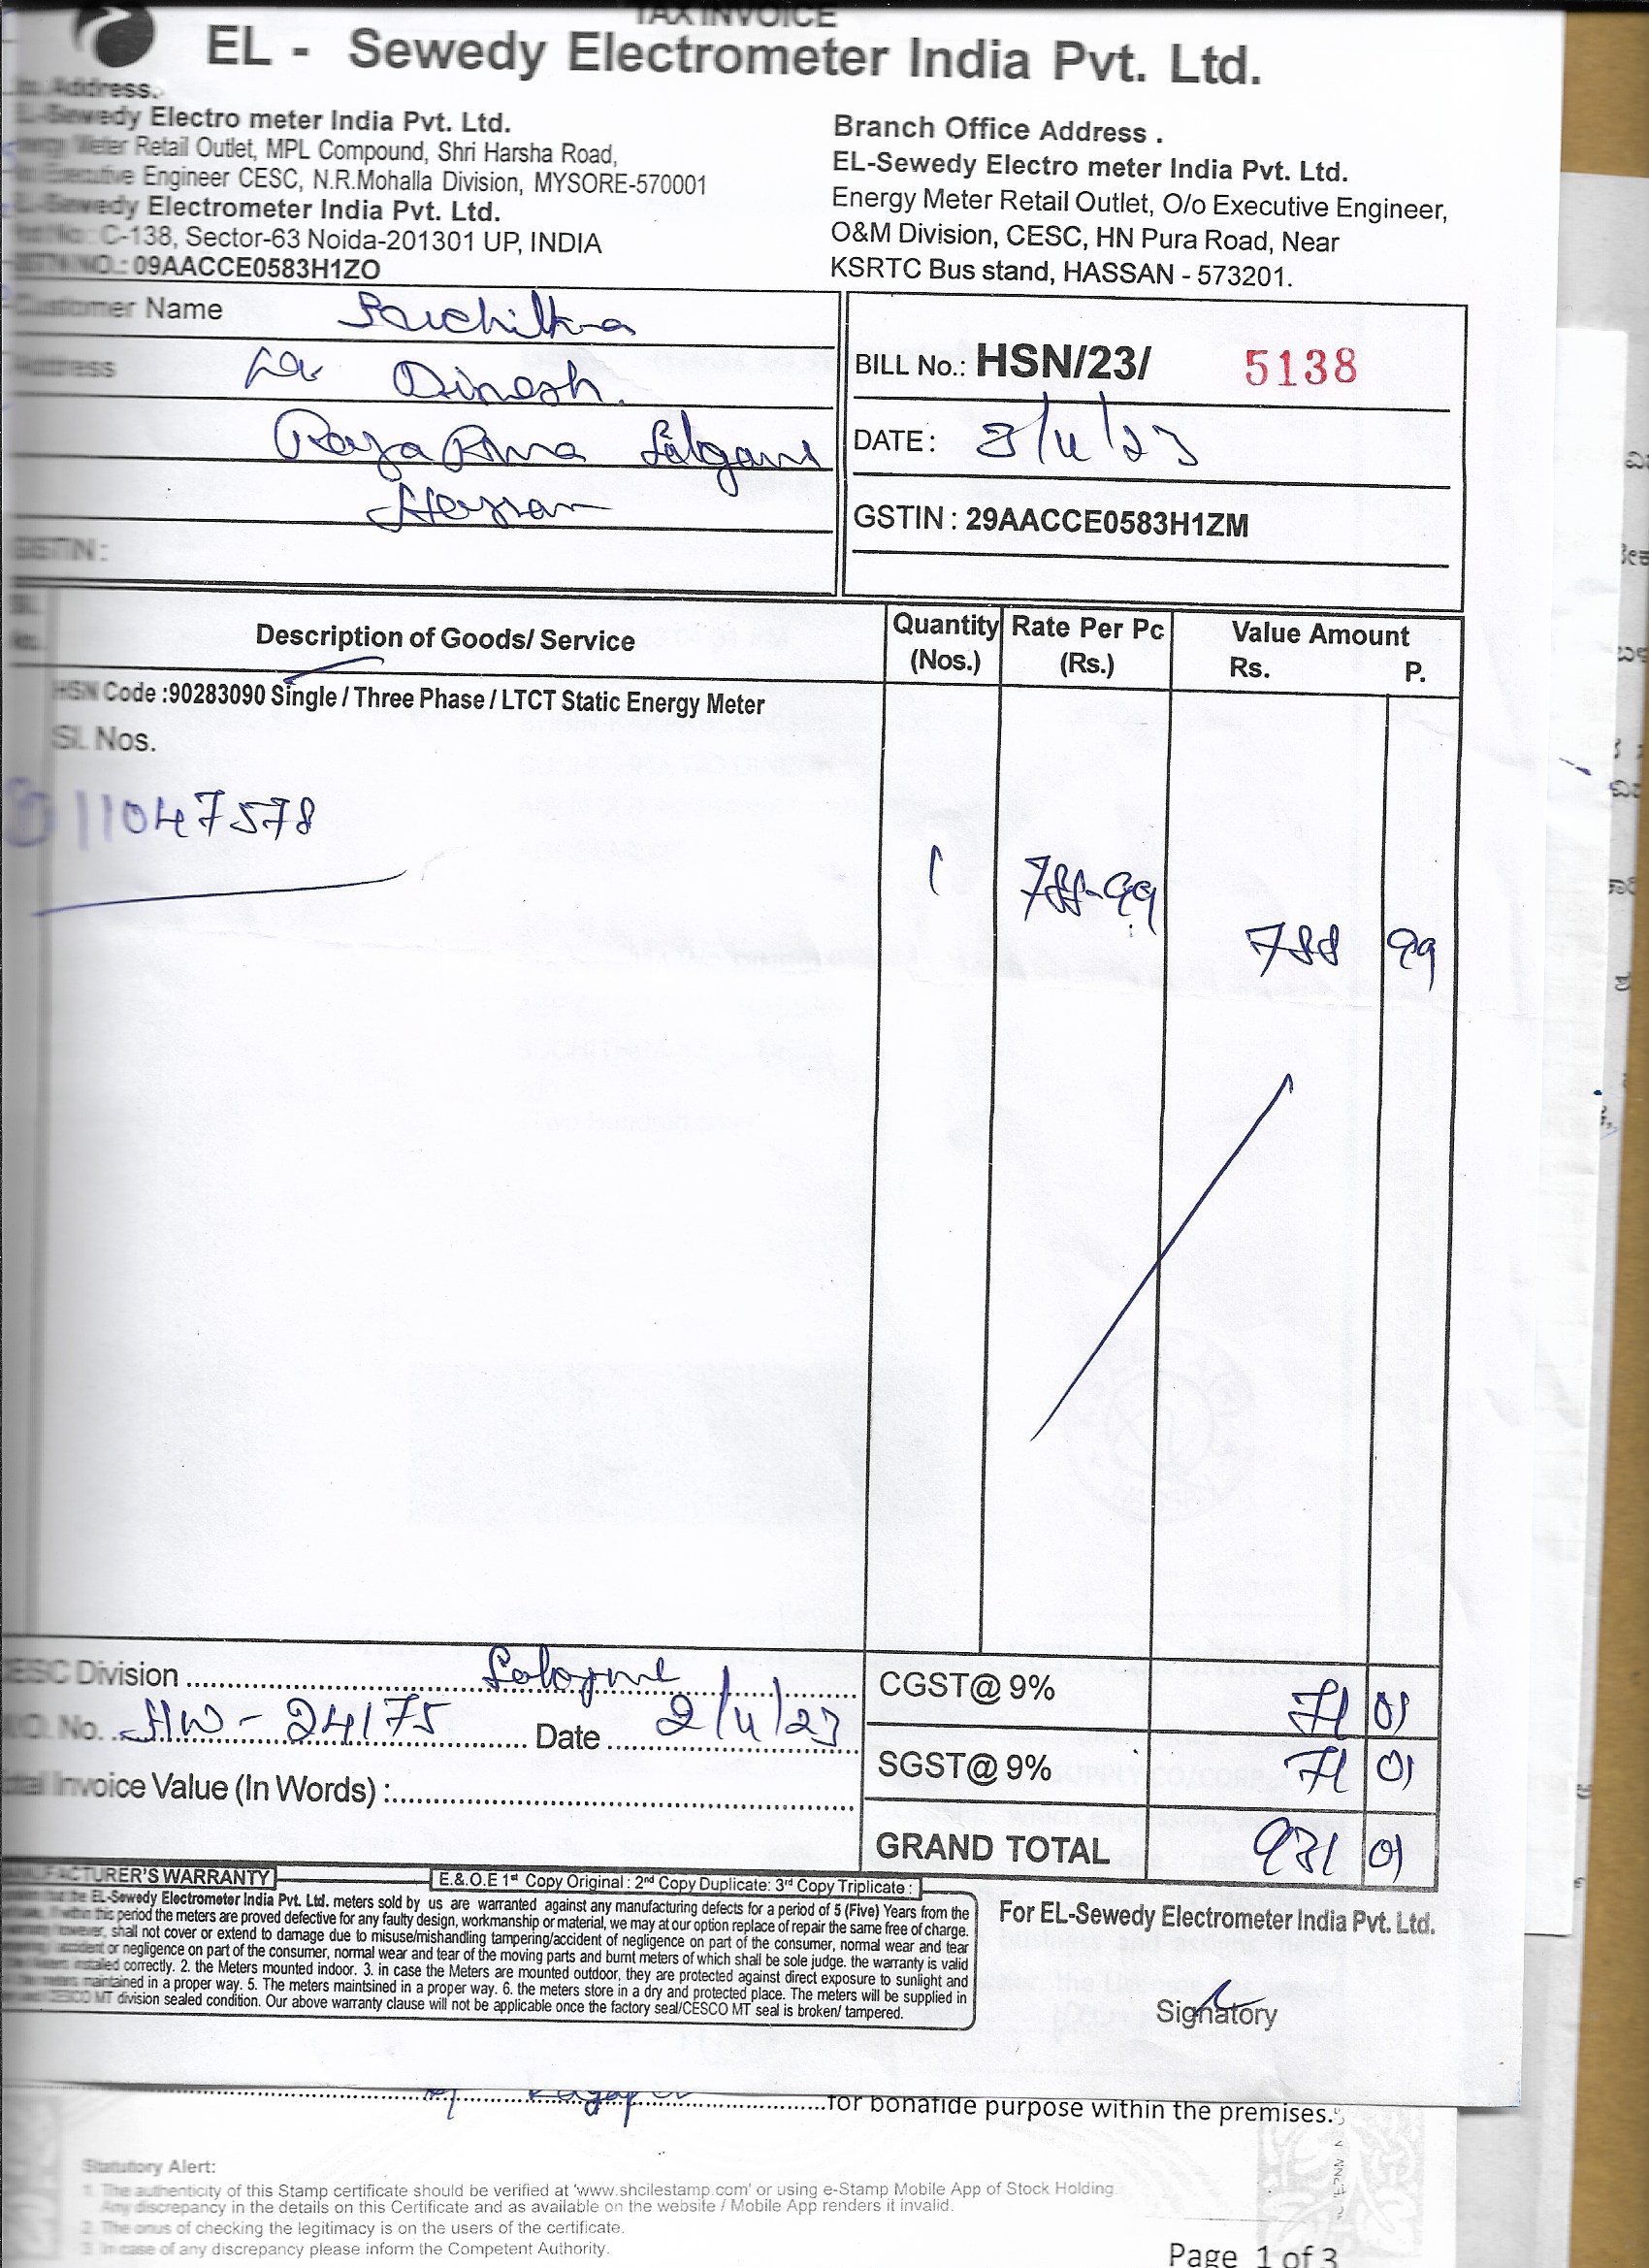 TAX INVOICE
EL - Sewedy Electrometer India Pvt. Ltd.
Address.
EL-Sewedy Electro meter India Pvt. Ltd.
Energy Meter Retail Outlet, MPL Compound, Shri Harsha Road,
Executive Engineer CESC, N.R.Mohalla Division, MYSORE-570001
EL-Sewedy Electrometer India Pvt. Ltd.
C-138, Sector-63 Noida-201301 UP, INDIA
GSTIN NO.: 09AACCE0583H1ZO
Branch Office Address .
EL-Sewedy Electro meter India Pvt. Ltd.
Energy Meter Retail Outlet, O/o Executive Engineer,
O&M Division, CESC, HN Pura Road, Near
KSRTC Bus stand, HASSAN - 573201.
Customer Name
Address Dinesh.
Hassan
GSTIN :
BILL No.: HSN/23/ 5138
DATE :
GSTIN : 29AACCE0583H1ZM
Sl. No. Description of Goods/ Service Quantity (Nos.) Rate Per Pc (Rs.) Value Amount Rs. P.
HSN Code :90283090 Single / Three Phase / LTCT Static Energy Meter
Sl. Nos.
① 11047578
1 788-99
788 99
CESC Division
No. HW - 24175 Date 2/11/23
Total Invoice Value (In Words) :
CGST@ 9% 71 01
SGST@ 9% 71 01
GRAND TOTAL 931 01
MANUFACTURER'S WARRANTY
E.& O.E 1st Copy Original : 2nd Copy Duplicate: 3rd Copy Triplicate :
the EL-Sewedy Electrometer India Pvt. Ltd. meters sold by us are warranted against any manufacturing defects for a period of 5 (Five) Years from the
within this period the meters are proved defective for any faulty design, workmanship or material, we may at our option replace of repair the same free of charge.
however, shall not cover or extend to damage due to misuse/mishandling tampering/accident of negligence on part of the consumer, normal wear and tear
accident or negligence on part of the consumer, normal wear and tear of the moving parts and burnt meters of which shall be sole judge. the warranty is valid
installed correctly. 2. the Meters mounted indoor. 3. in case the Meters are mounted outdoor, they are protected against direct exposure to sunlight and
the meters maintained in a proper way. 5. The meters maintsined in a proper way. 6. the meters store in a dry and protected place. The meters will be supplied in
CESCO MT division sealed condition. Our above warranty clause will not be applicable once the factory seal/CESCO MT seal is broken/ tampered.
For EL-Sewedy Electrometer India Pvt. Ltd.
Signatory
for bonafide purpose within the premises.
Statutory Alert:
1. The authenticity of this Stamp certificate should be verified at 'www.shcilestamp.com' or using e-Stamp Mobile App of Stock Holding.
Any discrepancy in the details on this Certificate and as available on the website / Mobile App renders it invalid.
2. The onus of checking the legitimacy is on the users of the certificate.
3. In case of any discrepancy please inform the Competent Authority.
Page 1 of 3